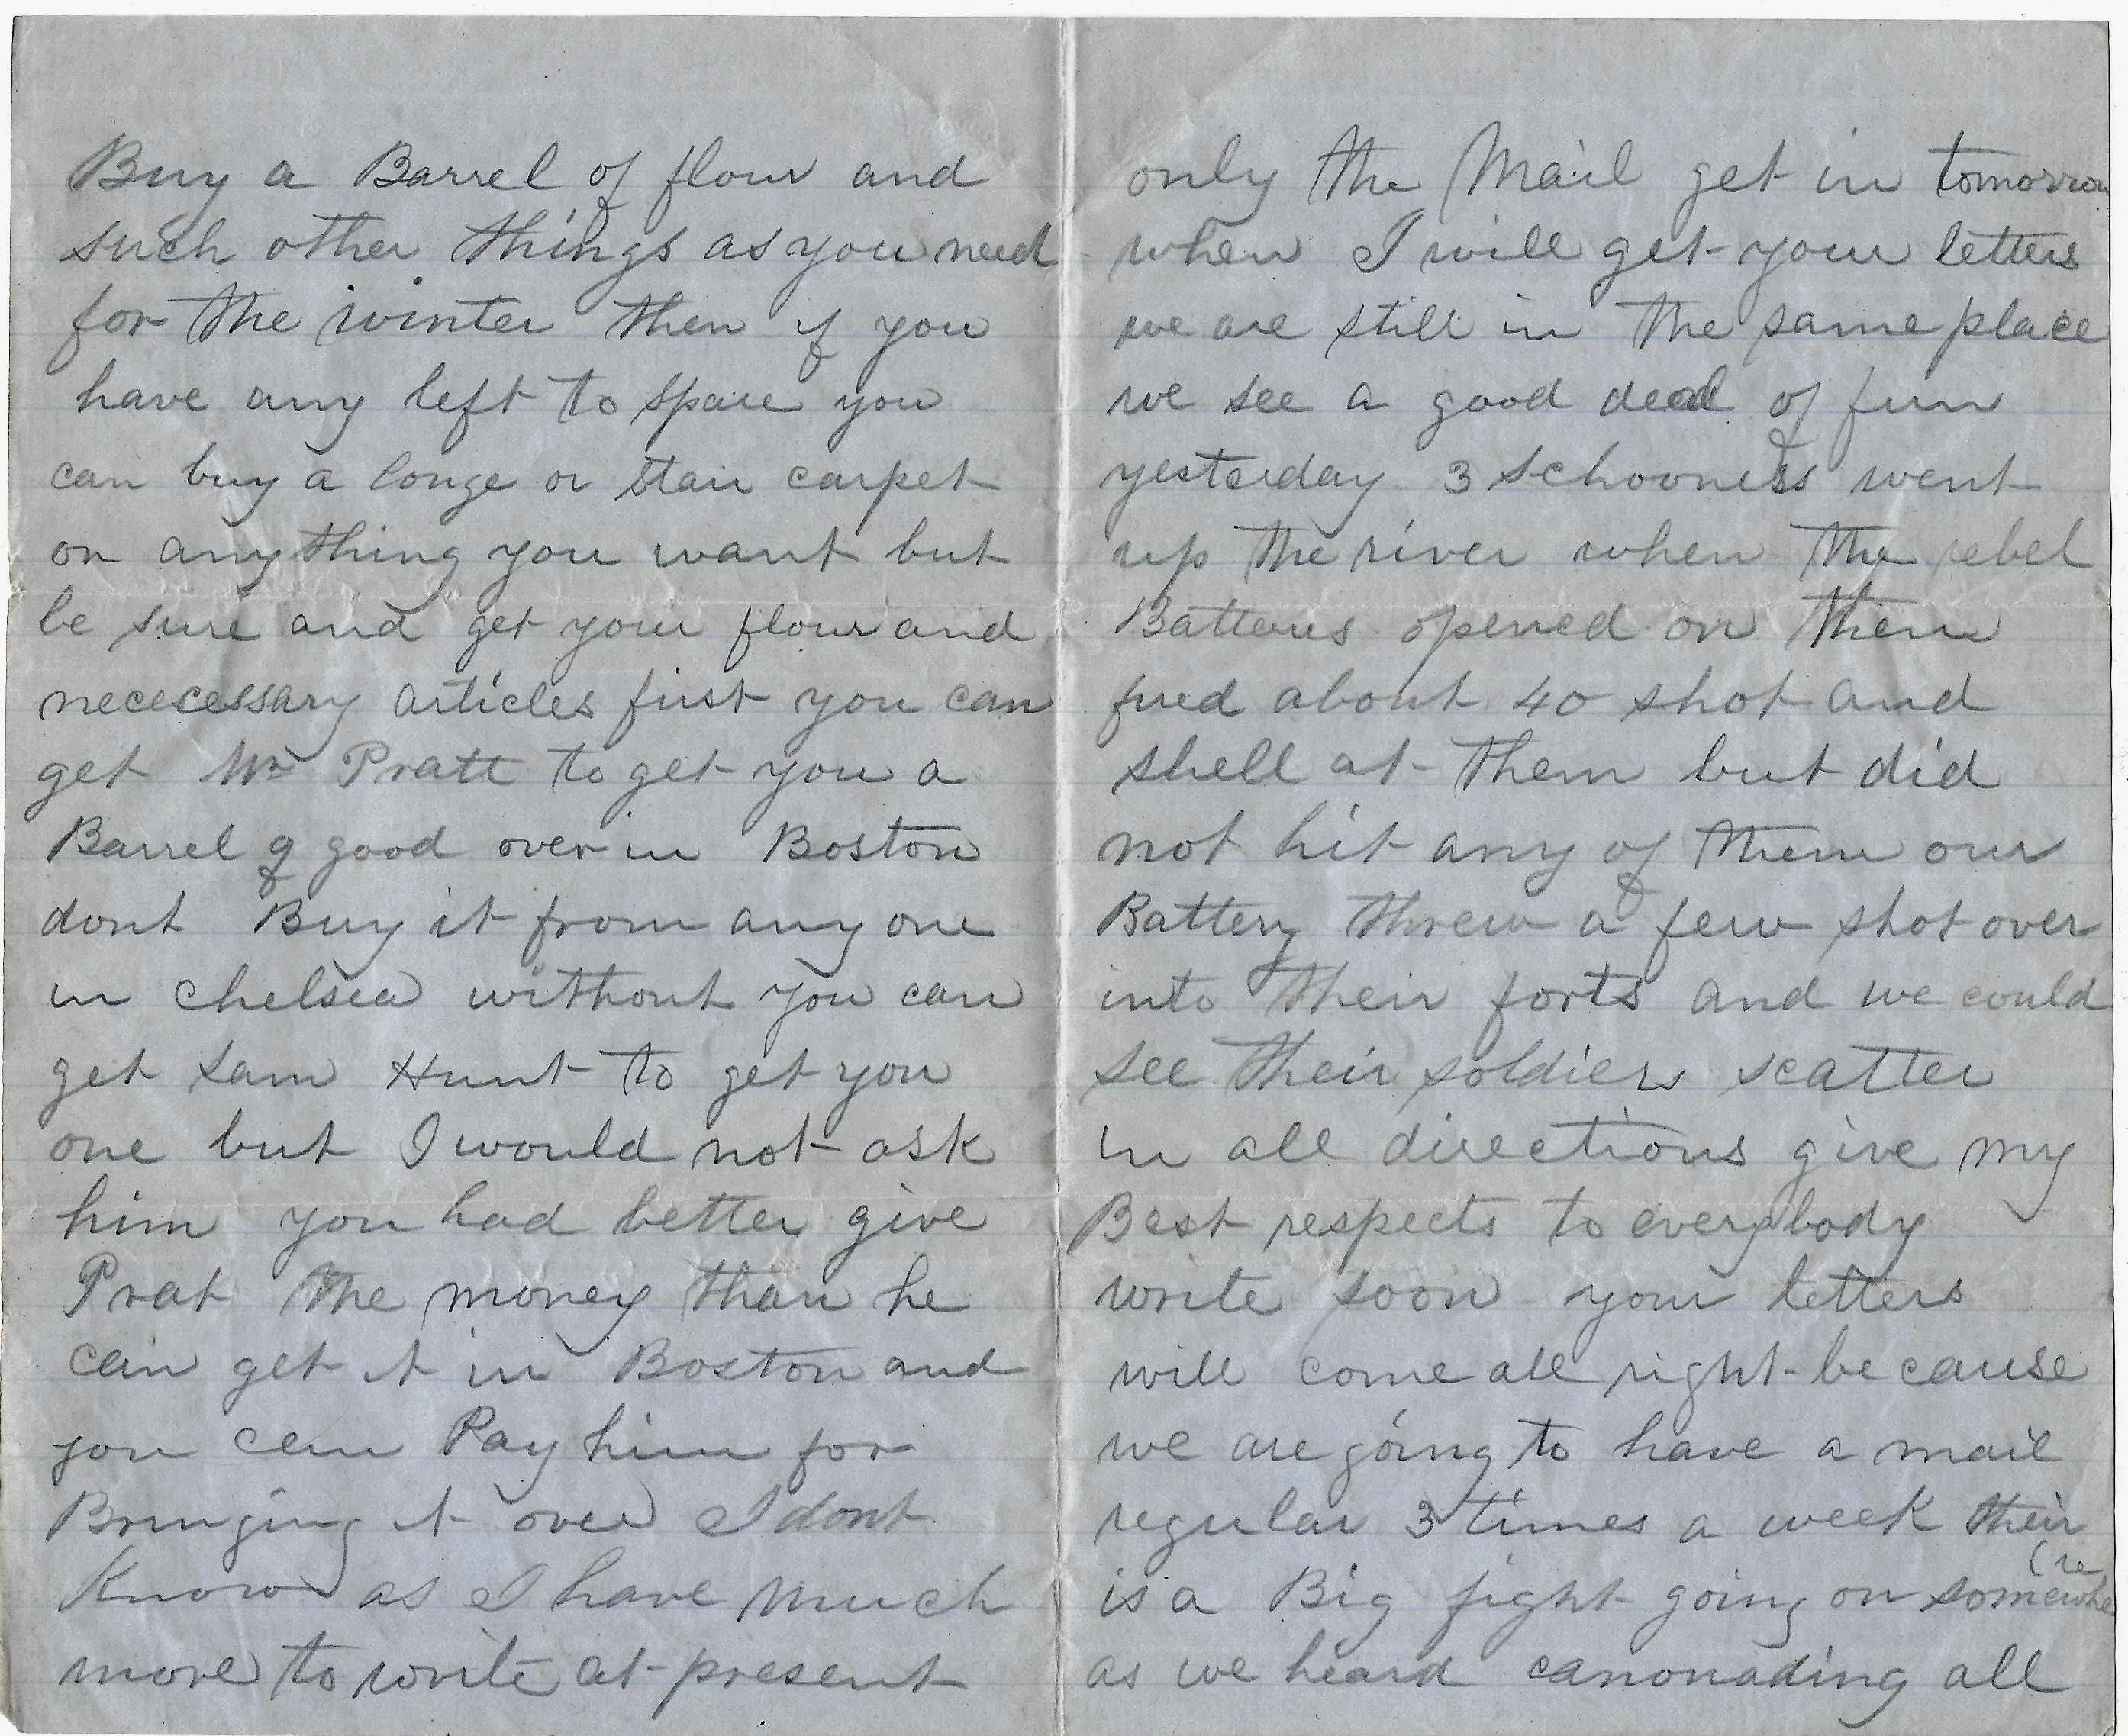 Buy a Barrel of flour and
such other things as you need
for the winter then if you
have any left to spare you
can buy a longe or stair carpet
or anything you want but
be sure and get your flour and
nececessary articles first you can
get Mr Pratt to get you a
Barrel of good over in Boston
dont Buy it from any one
in Chelsea without you can
get Sam Hunt to get you
one but I would not ask
him you had better give
Prat the money than he
can get it in Boston and
you can Pay him for
Bringing it over I dont
Know as I have much
more to write at present
only the Mail get in tomorrow
when I will get your letters
we are still in the same place
we see a good deal of fun
yesterday 3 schooners went
up the river when the rebel
Batteries opened on them
fired about 40 shot and
shell at them but did
not hit any of them our
Battery threw a few shot over
into their forts and we could
see their soldiers scatter
in all directions give my
Best respects to everybody
write soon your letters
will come all right because
we are going to have a mail
regular 3 times a week their
is a Big fight going on somewhere
as we heard canonading all